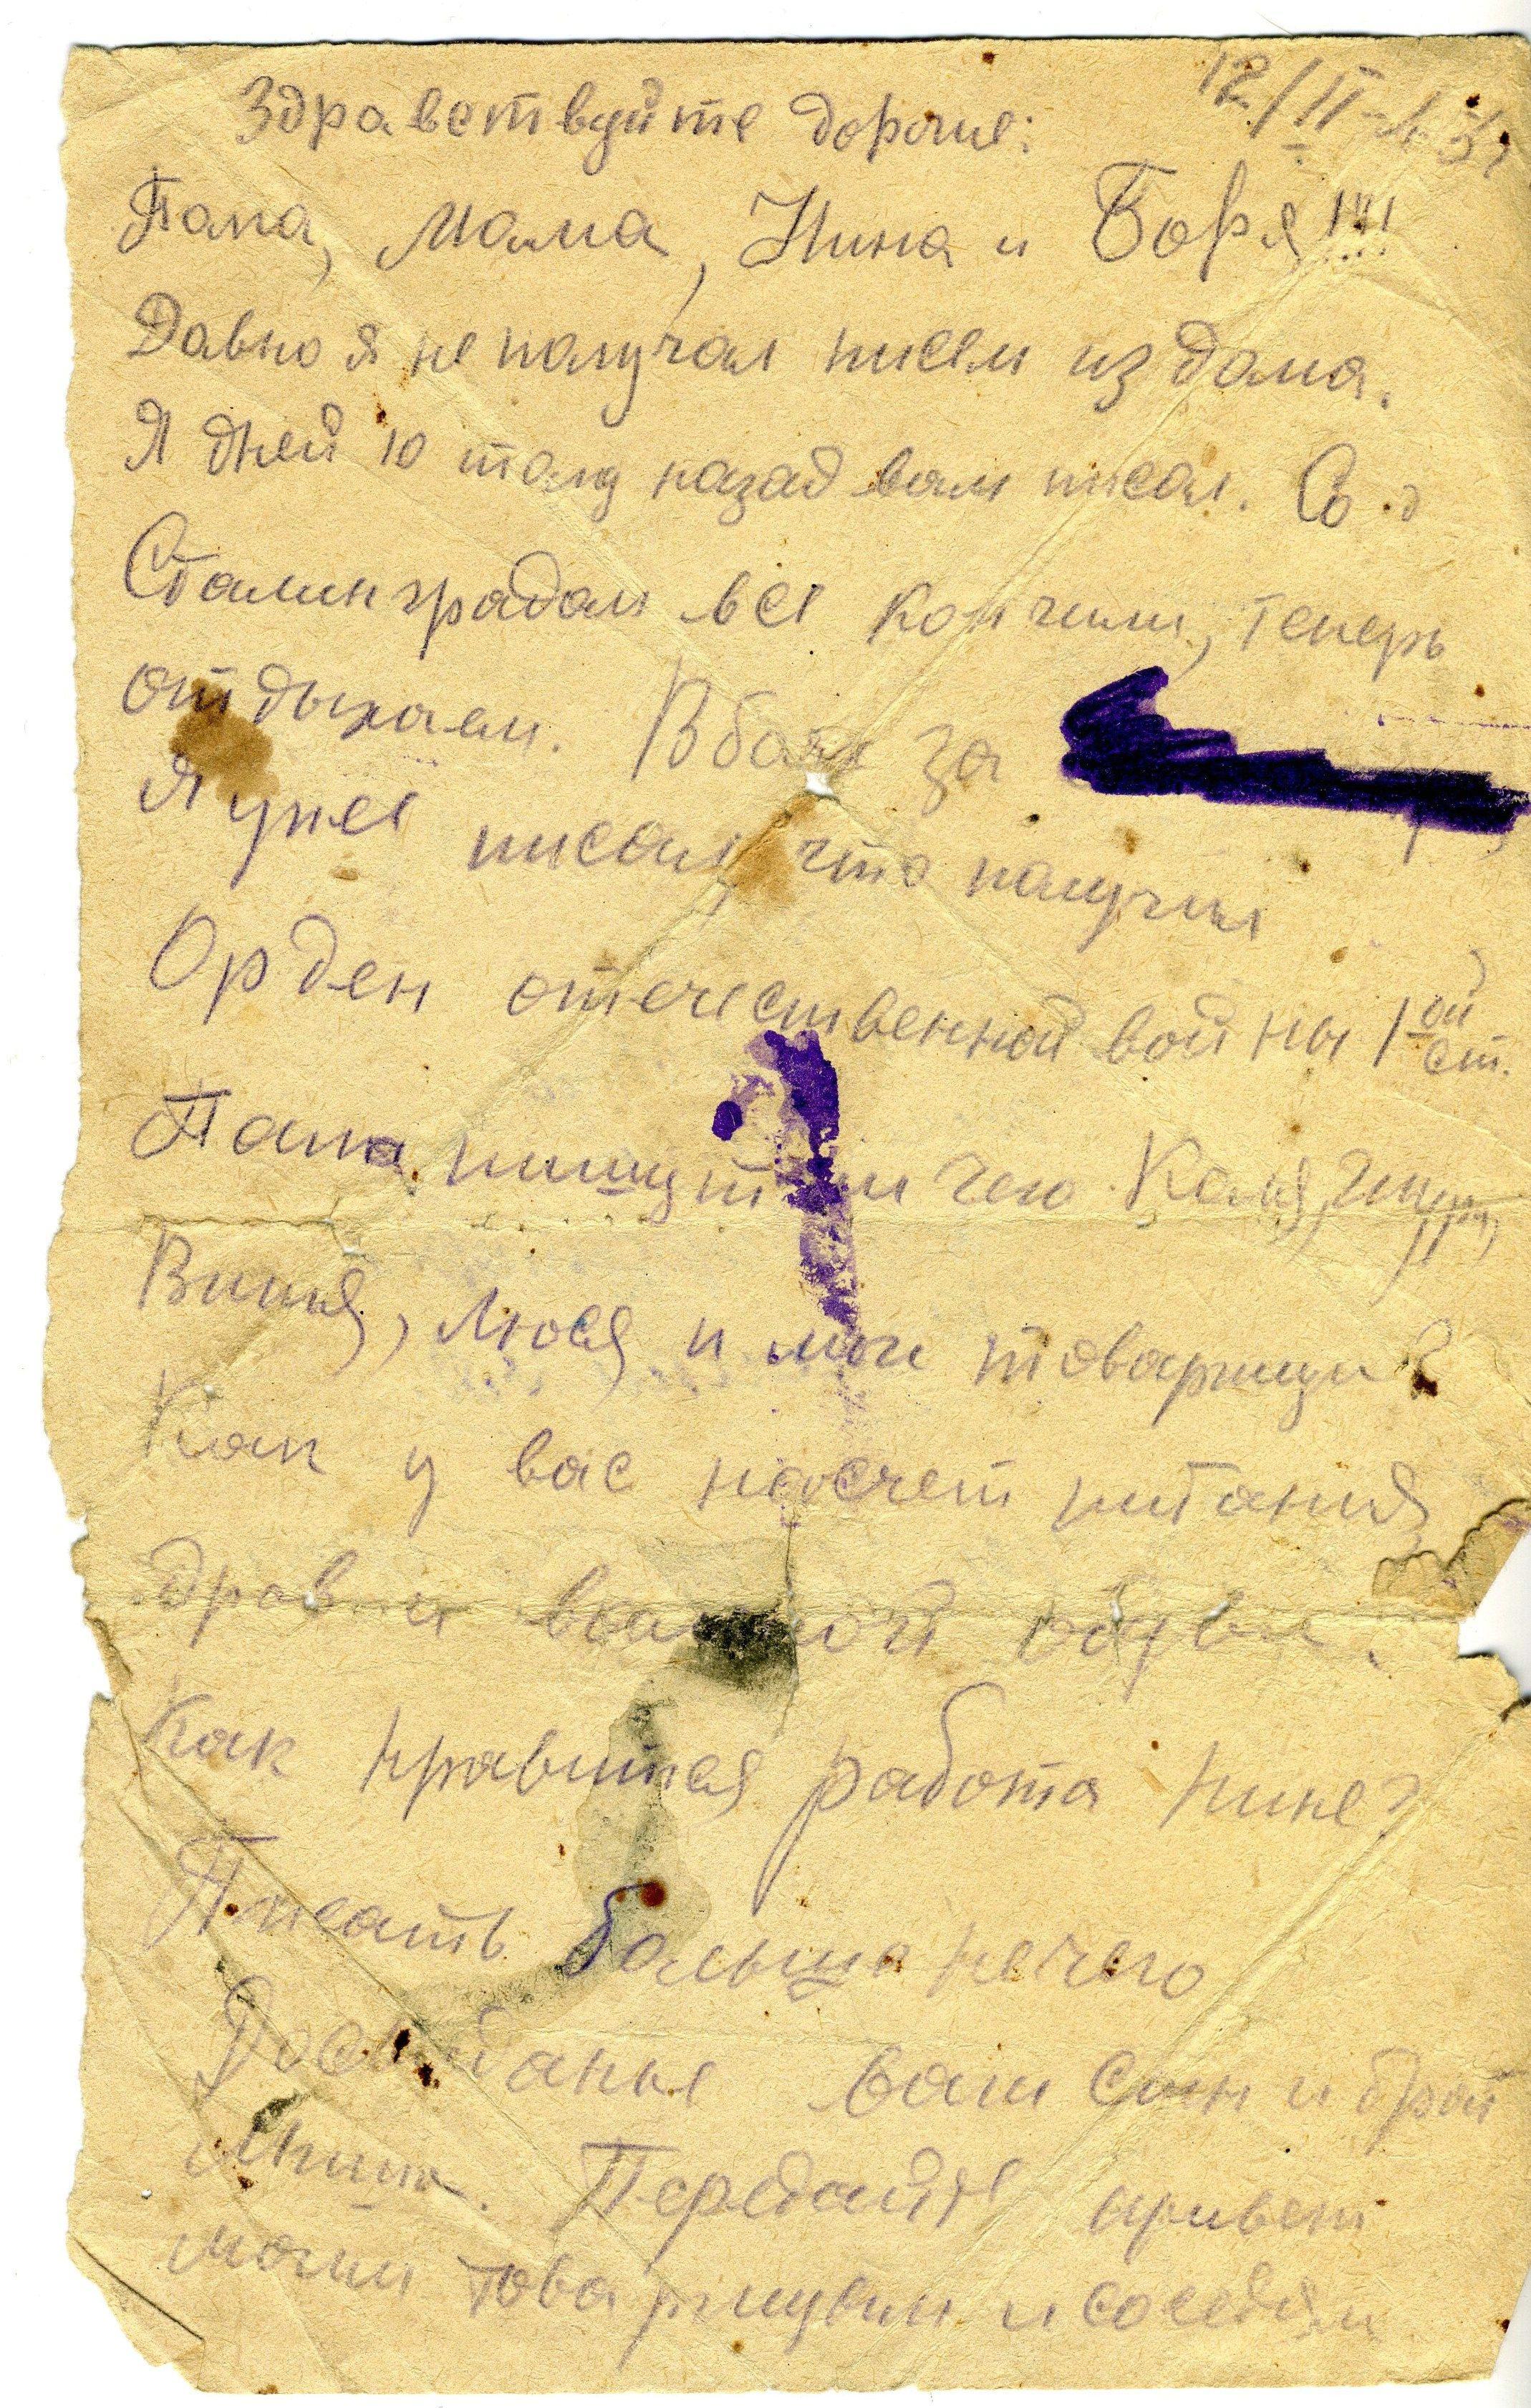 12/II-43г
Здравствуйте дорогие:
Папа, Мама, Нина и Боря!!!!
Давно я не получал писем из дома.
Я дней 10 тому назад вам писал. Со
Сталинградом все кончили, теперь
отдыхаем. В боях за
Я уже писал, что получил
Орден отечественной войны 1ой ст.
Папа пишут ли чего Коля, Шура,
Витя, Люся и мои товарищи?
Как у вас насчет питания
дров и обуви.
Как нравится работа Нине?
Писать больше нечего
Досвиданье ваш сын и брат
Миша. Передайте привет
моим товарищам и соседям